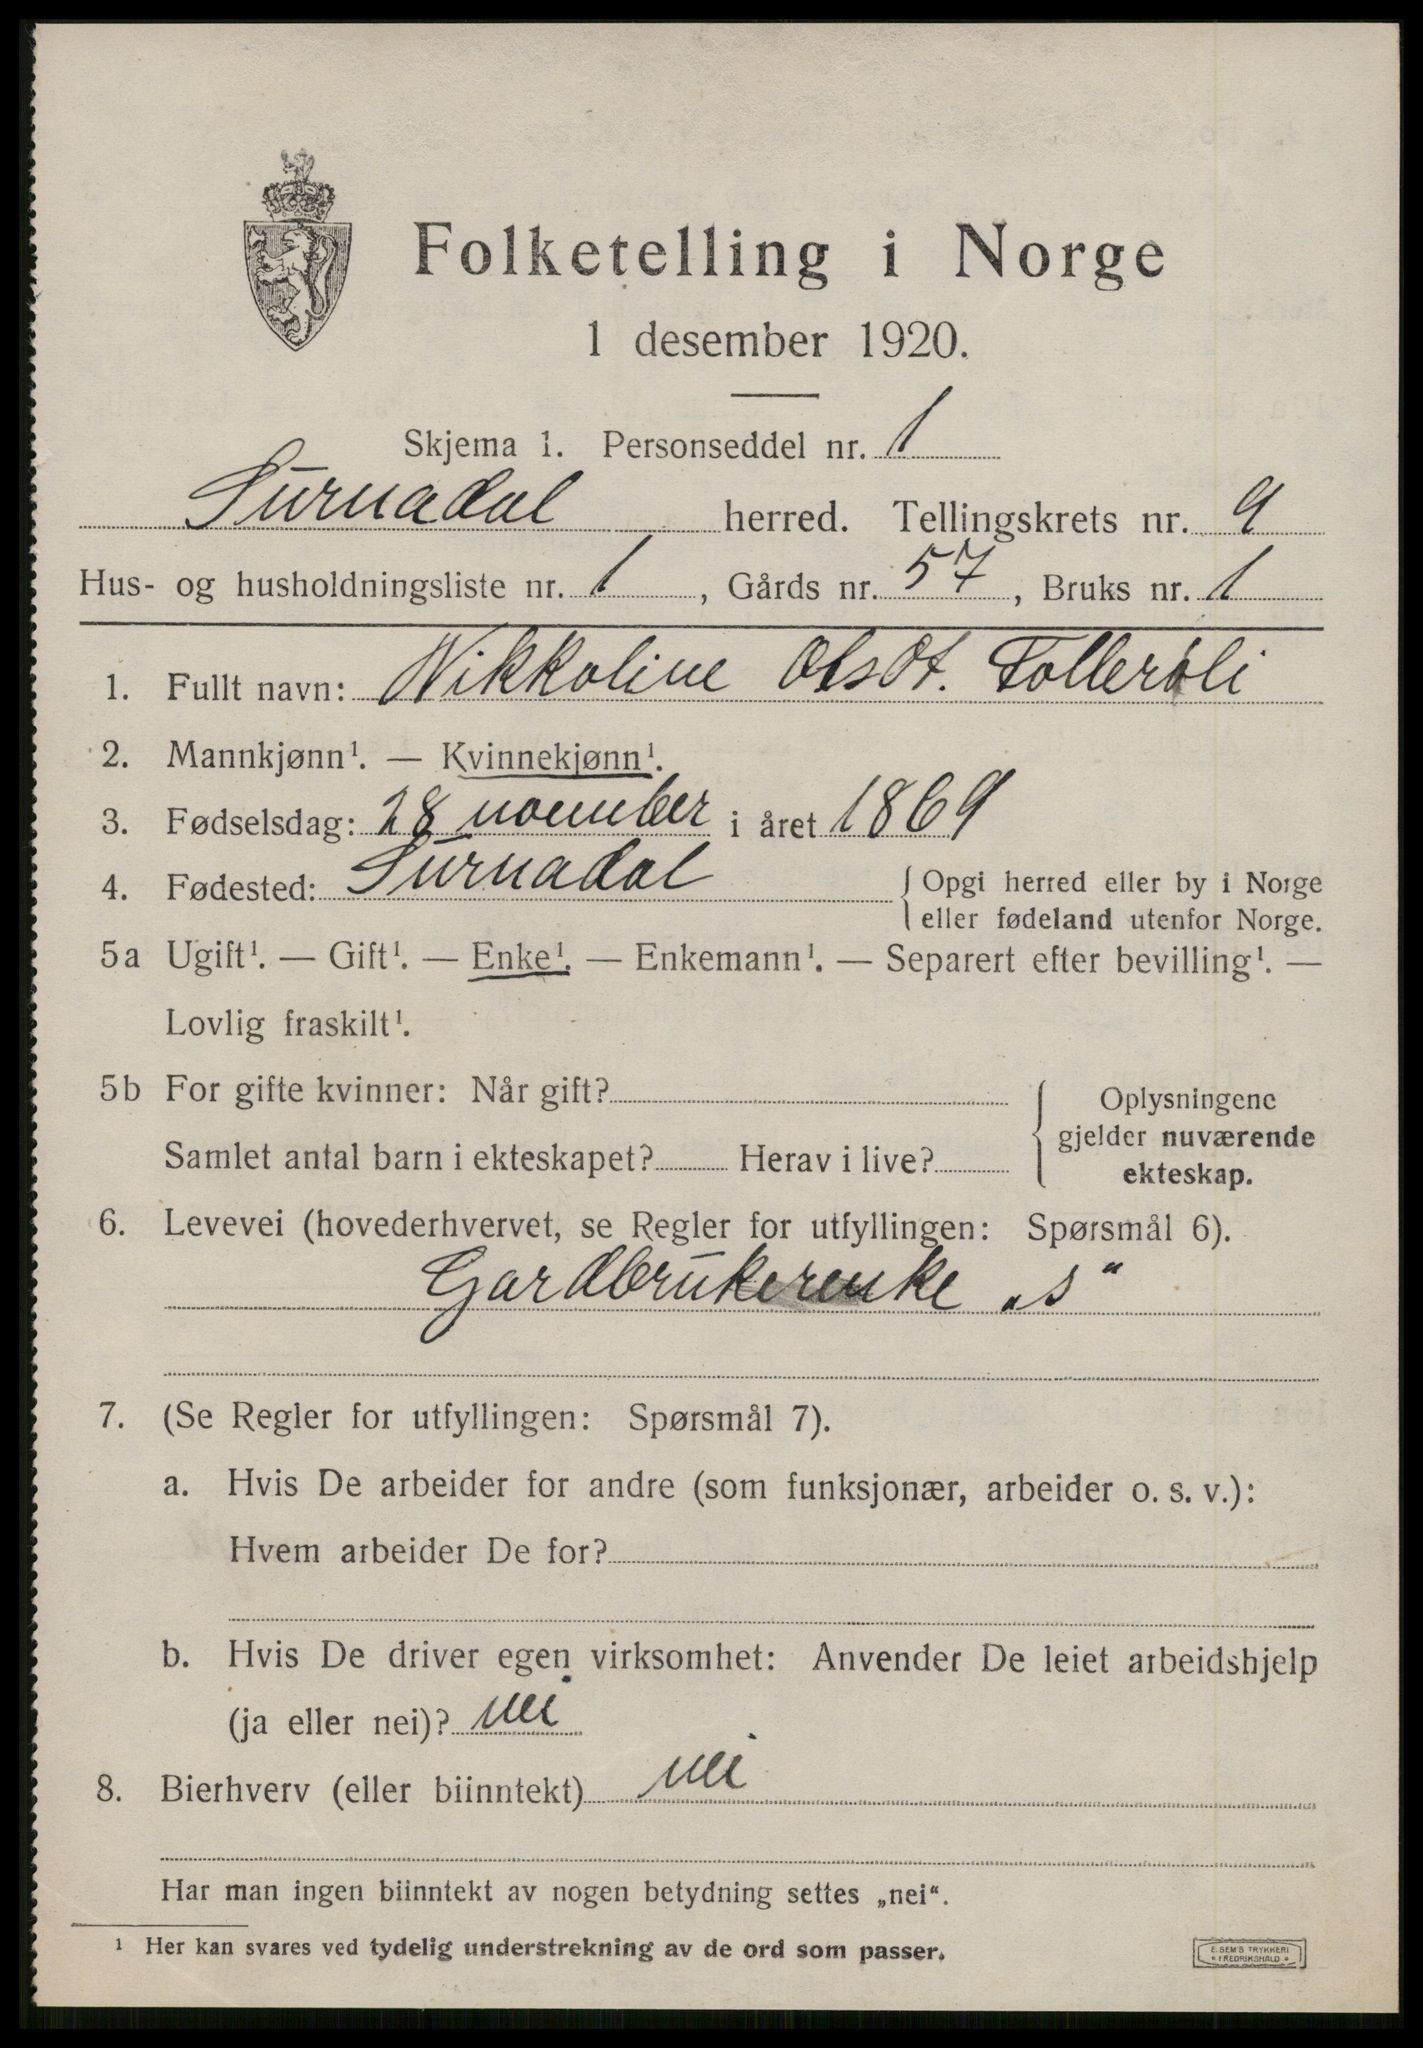 Folketelling i Norge
1 desember 1920.
Skjema 1. Personseddel nr. 1
Surnadal herred. Tellingskrets nr. 9
Hus- og husholdningsliste nr. 1, Gårds nr. 57, Bruks nr. 1
1. Fullt navn: Nikkoline Olsdt. Tollerøli
2. Mannkjønn¹. — Kvinnekjønn¹.
3. Fødselsdag: 28 november i året 1869
4. Fødested: Surnadal { Opgi herred eller by i Norge
eller fødeland utenfor Norge.
5a Ugift¹. — Gift¹. — Enke¹. — Enkemann¹. — Separert efter bevilling¹. —
Lovlig fraskilt¹.
5b For gifte kvinner: Når gift? { Oplysningene
gjelder nuværende
Samlet antal barn i ekteskapet? Herav i live? ekteskap.
6. Levevei (hovederhvervet, se Regler for utfyllingen: Spørsmål 6).
Gardbrukerenke „s“
7. (Se Regler for utfyllingen: Spørsmål 7).
a. Hvis De arbeider for andre (som funksjonær, arbeider o. s. v.):
Hvem arbeider De for?
b. Hvis De driver egen virksomhet: Anvender De leiet arbeidshjelp
(ja eller nei)? nei
8. Bierhverv (eller biinntekt) nei
Har man ingen biinntekt av nogen betydning settes „nei“.
¹ Her kan svares ved tydelig understrekning av de ord som passer.
E. SEM'S TRYKKERI
FREDRIKSHALD